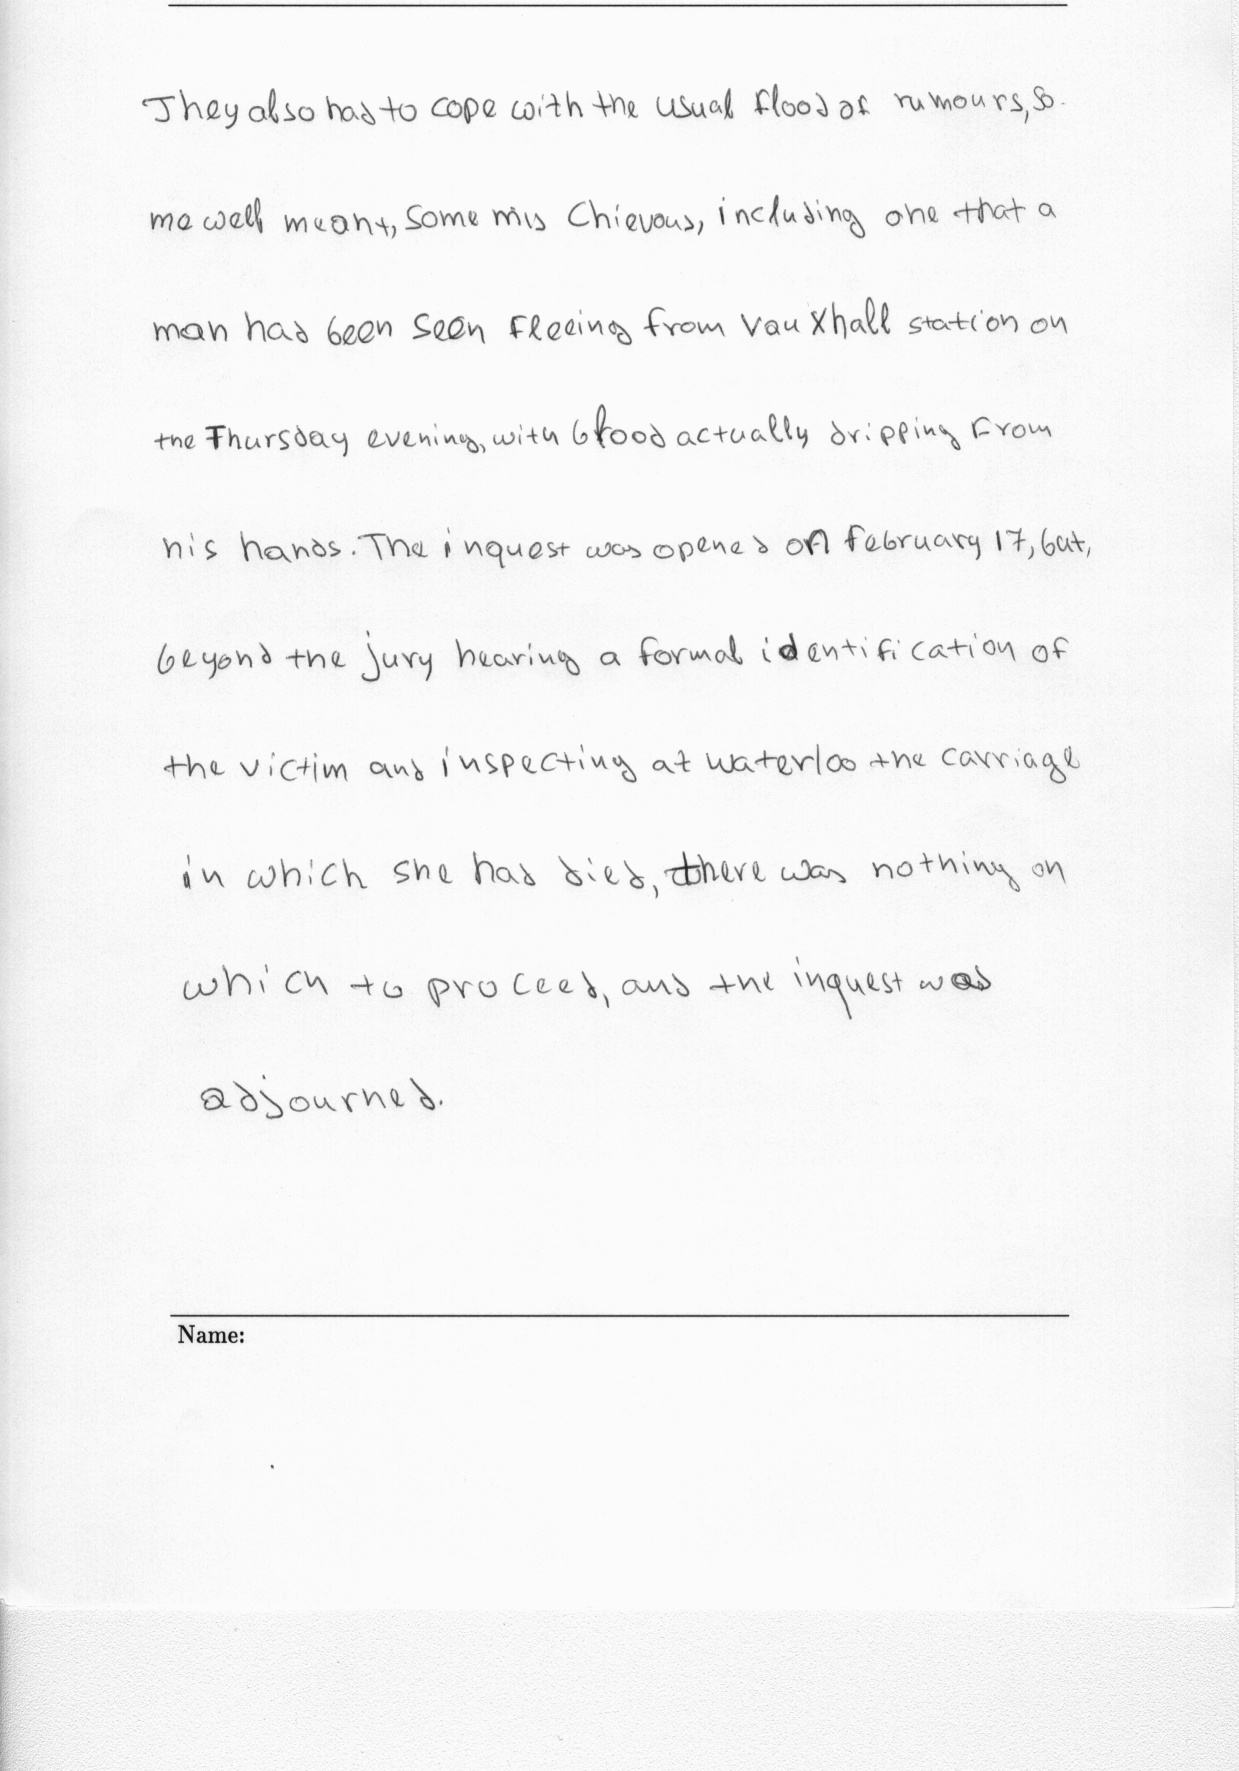 They also had to cope with the usual flood of rumours, so-
me well meant, some mischievous, including one that a
man had been seen fleeing from Vauxhall station on
the Thursday evening, with blood actually dripping from
his hands. The inquest was opened on February 17, but,
beyond the jury hearing a formal identification of
the victim and inspecting at Waterloo the carriage
in which she had died, there was nothing on
which to proceed, and the inquest was
adjourned.
Name: